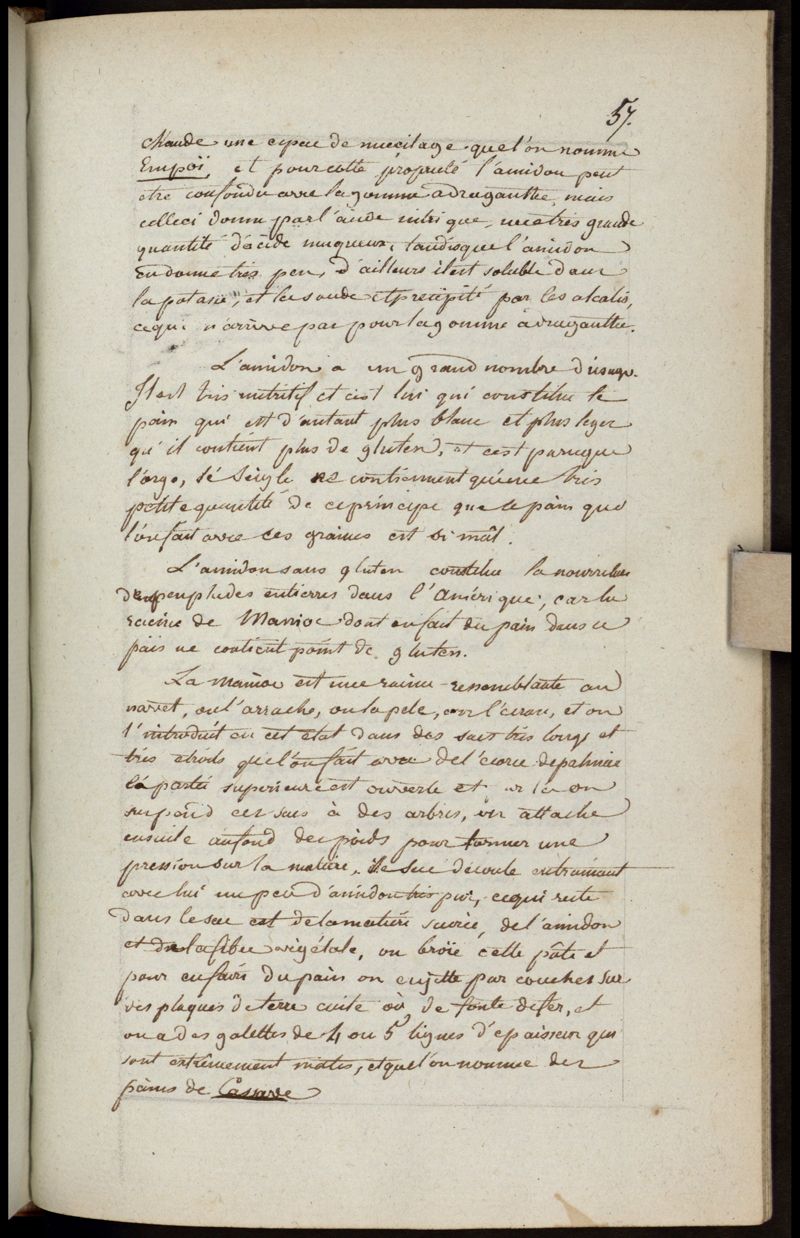 57.
chaude une espece de mucilage que l'on nomme
Empoï, et pour cette propriété l'amidon peut
etre confondu avec la gomme adraganthe, mais
celleci donne par l'acide nitrique, une très grande
quantité d'acide muqueux, tandisque l'amidon
en donne très peu, d'ailleurs il est soluble dans
la potasse, et la soude et precipité par les alcalis,
cequi n'arrive pas pour la gomme adraganthe.
L'amidon a un grand nombre d'usage.
Il est très nutritif et c'est lui qui constitue le
pain qui est d'autant plus blanc et plus leger
qu'il contient plus de gluten, et c'est parceque
l'orge, le seigle ne contiennent qu'une très
petite quantité de ce principe que le pain que
l'on fait avec ces graines est si mât.
L'amidon sans gluten constitue la nourriture
de peuplades entierres dans l'Amérique, car la
racine de Manioc dont on fait du pain dans ce
païs ne contient point de gluten.
La manioc est une racine ressemblante au
navet, on l'arrache, on la pele, on l'écrase, et on
l'introduit en cet état dans des sacs très longs et
très etroits que l'on fait avec de l'écorce de palmier
la partie superieure est ouverte et on
suspend ces sacs à des arbres, on attache
ensuite au fond des poids pour former une
pression sur la matiere, le suc découle entrainant
avec lui un peu d'amidon très pur, cequi reste
dans le sac est de la matiere sucrée, de l'amidon
et de la fibre végétale, on broïe cette pâte et
pour en faire du pain on en jette par couches sur
des plaques de terre cuite où de fonte de fer, et
on a des galettes de 4 ou 5 lignes d'epaisseur qui
sont extrêmement mattes, et que l'on nomme des
pains de Cassave